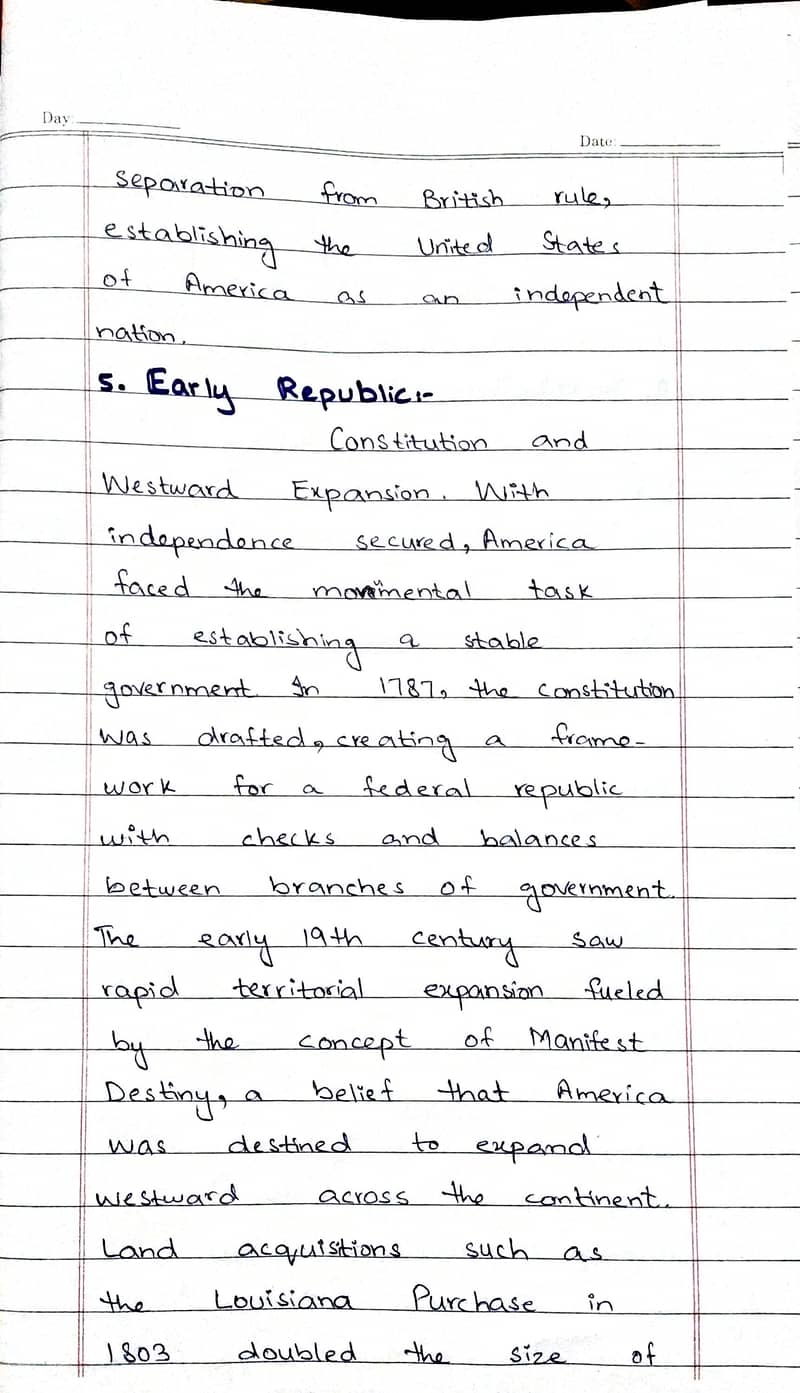 Day:
Date:
separation from British rule,
establishing the United States
of America as an independent
nation.
5. Early Republic:-
Constitution and
Westward Expansion. With
independence secured, America
faced the task
of establishing a stable
government. In 1787, the constitution
was drafted, creating a frame-
work for a federal republic
with checks and balances
between branches of government.
The early 19th century saw
rapid territorial expansion fueled
by the concept of Manifest
Destiny, a belief that America
was destined to expand
westward across the continent.
Land acquisitions such as
the Louisiana Purchase in
1803 doubled the size of